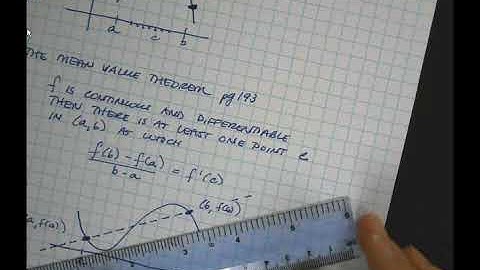 a c b
THE MEAN VALUE THEOREM pg 193
f IS CONTINUOUS AND DIFFERENTIABLE
THEN THERE IS AT LEAST ONE POINT c
IN (a,b) AT WHICH
f(b) - f(a) / b - a = f'(c)
(a, f(a))
(b, f(b))